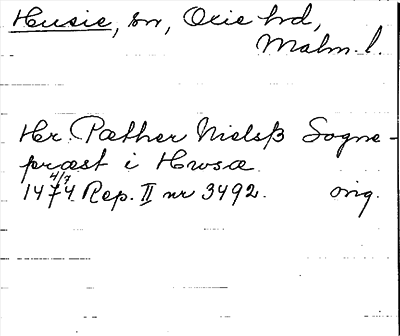 Husie, sn, Oxie hrd,
Malm. l.
Hr. Pæther Nielsß Sogne-
præst i Hwsæ
4/7
1474. Rep. II nr 3492. orig.